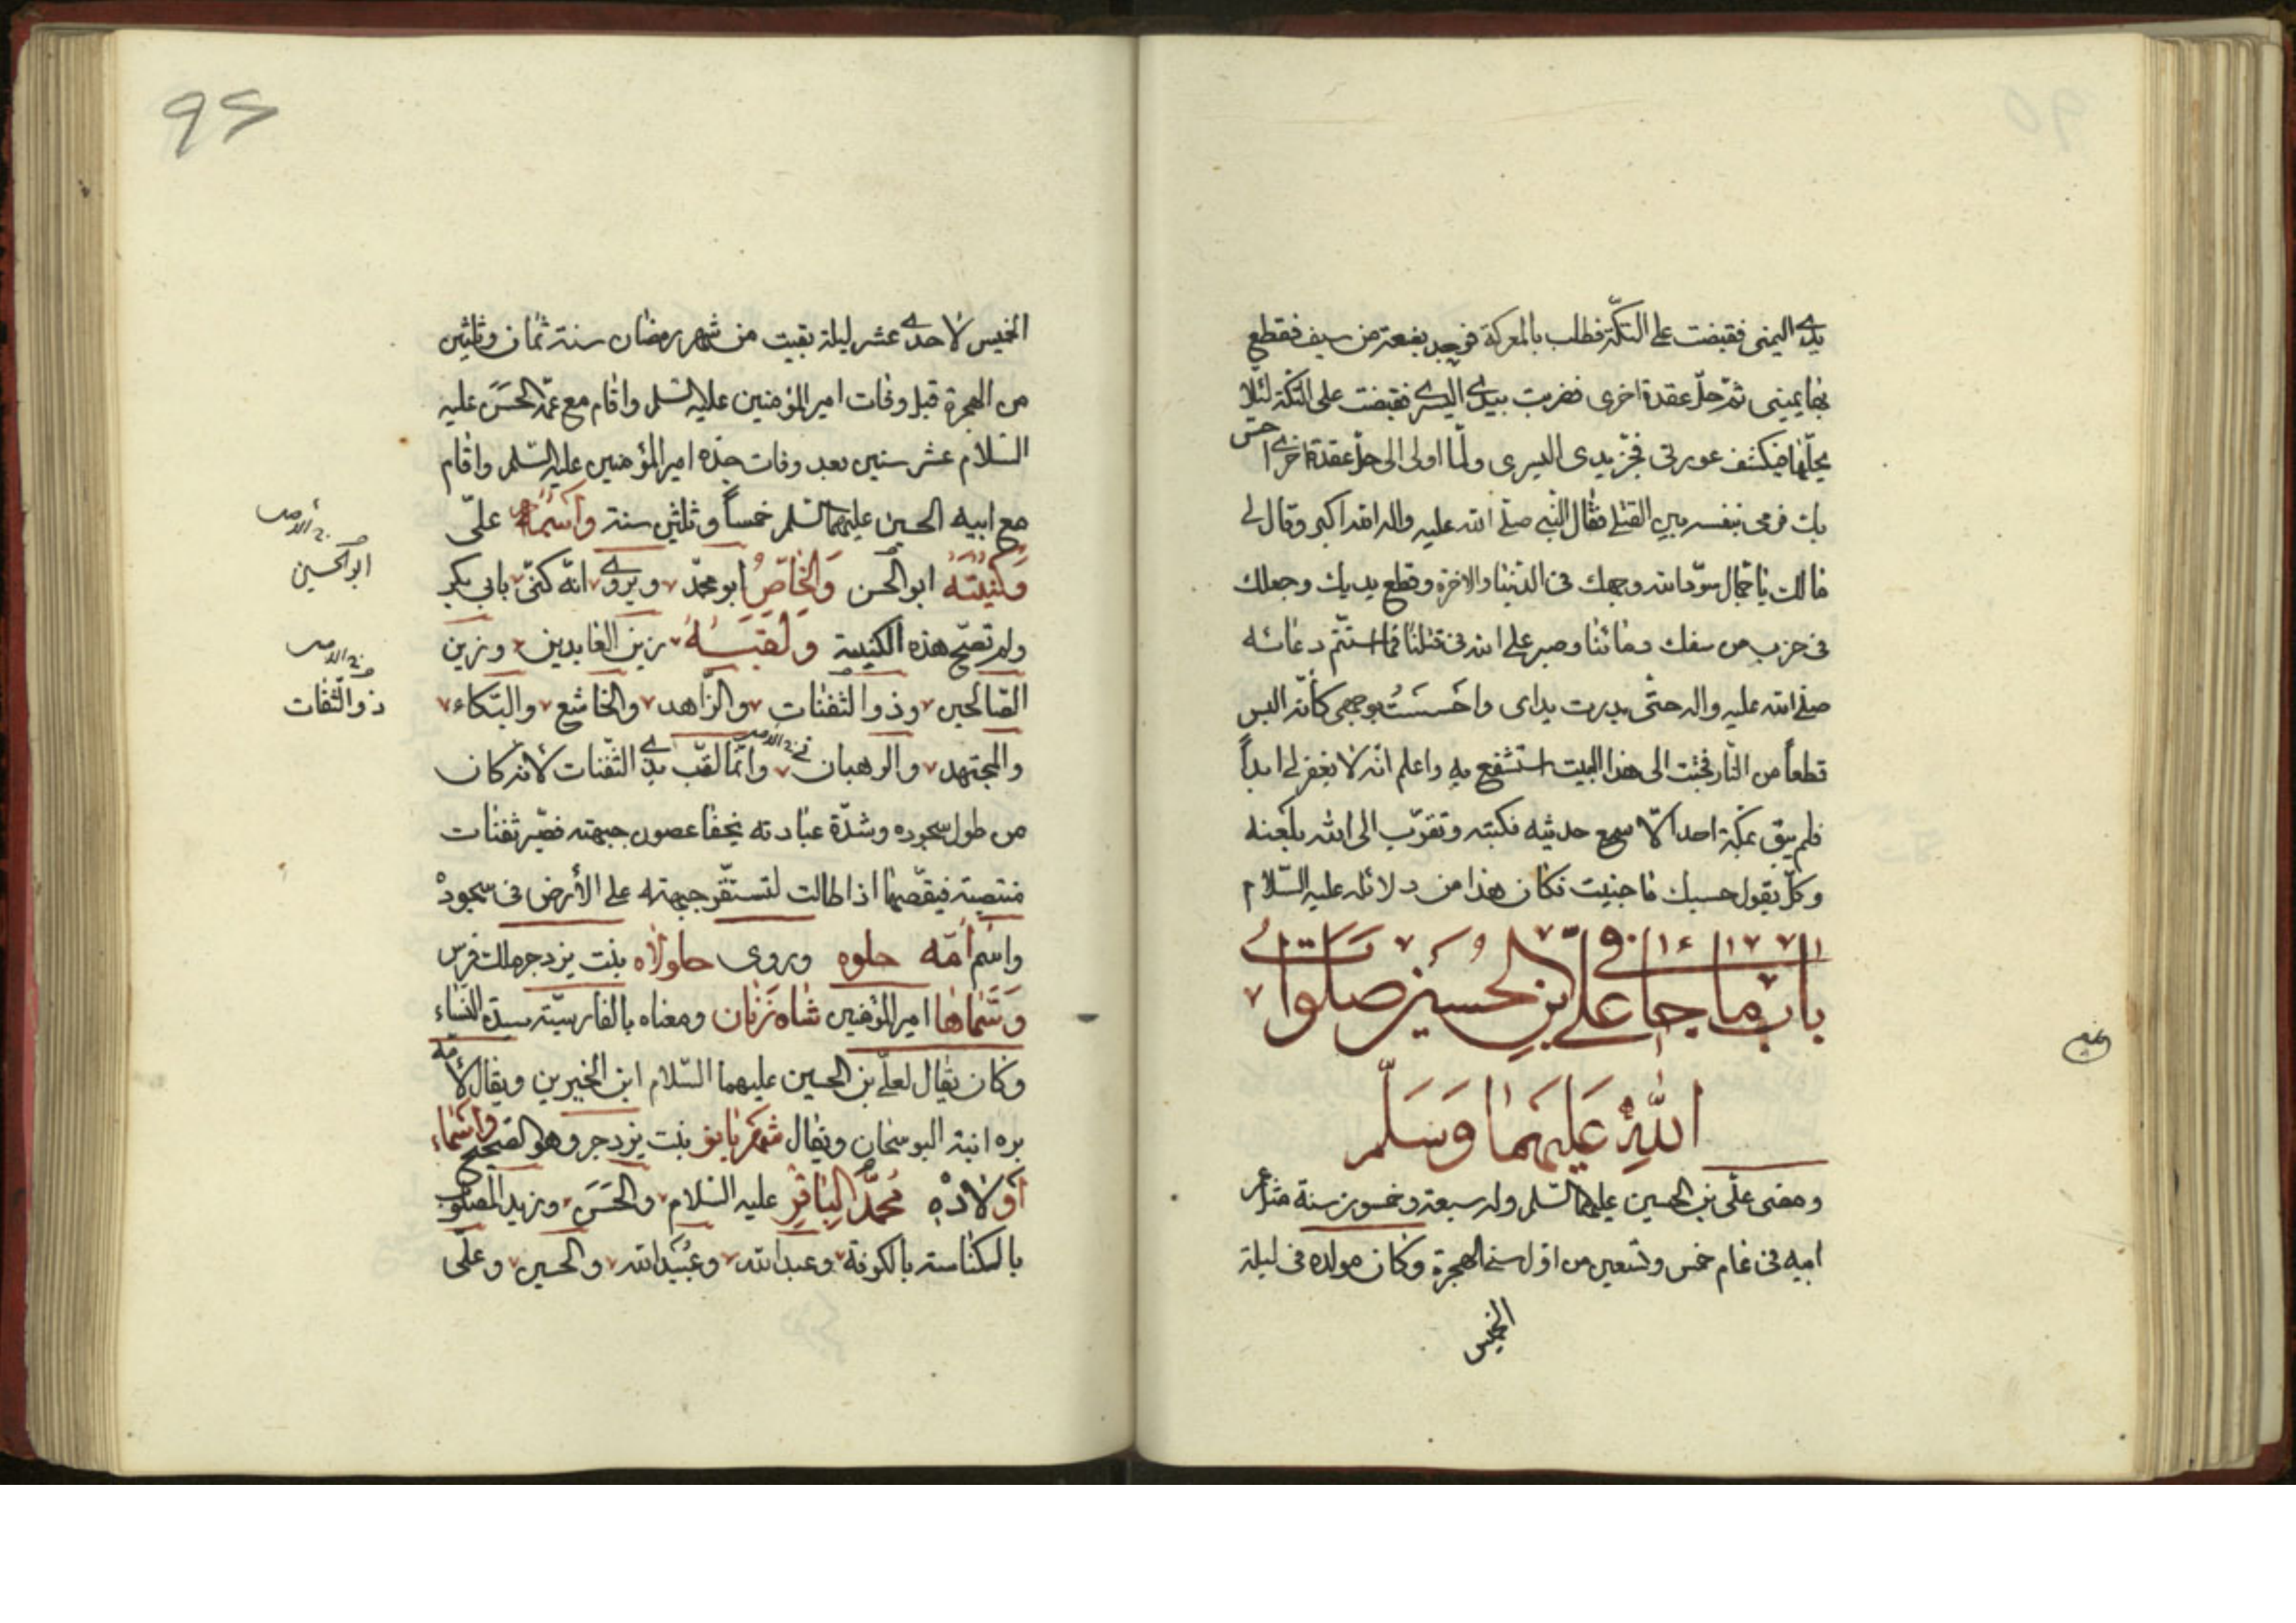 يدي اليمنى فقبضت على التكّة فطلب بالمعركة فوجد بضعة من سيف فقطع
بها يميني ثمّ حلّ عقدة اخرى فضربت بيدي اليسرى فقبضت على التكة لئلا
يحلّها فيكشف عورتى فجزّ يدى اليسرى ولمّا اولى الى حلّ عقدة اخرى احسّ
بك فرمى بنفسه بين القتلى فقال النّبي صلّى الله عليه واله الله اكبر وقال لى
مالك يا جمال سوّد الله وجهك فى الدّنيا والاخرة وقطع يديك وجعلك
فى حزب من سفك دمائنا وصبر على الله فى قتلنا فما استتمّ دعائه
صلّى الله عليه واله حتّى بدرت يداى واحسست بوجهى كأنّه البس
قطعاً من النّار فجئت الى هذا البيت استشفع به واعلم انّه لا يغفر لى ابداً
فلم يبق بمكّة احد الّا سمع حديثه فكتبه وتقرّب الى الله بلعنه
وكلّ يقول حسبك ما جنيت فكان هذا من دلائله عليه السّلام
باب ما جاء فى علىّ بن الحسين صلوات
الله عليهما وسلّم
ومضى علّى بن الحسين عليهما السّلم وله سبعة وخمسون سنة مثل عمر
ابيه فى عام خمس وتسعين من اوّل سنى الهجرة وكان مولده فى ليلة
الخميس
95
الخميس لاحدى عشر ليلة بقيت من شهر رمضان سنة ثمان وثلثين
من الهجرة قبل وفات امير المؤمنين عليه السلم واقام مع عمّه الحسن عليه
السّلام عشر سنين بعد وفات جدّه امير المؤمنين عليه السّلم واقام
مع ابيه الحسين عليهما السّلم خمساً وثلثين سنة واسمه علّى
وكنيته ابو الحسن والخاصّ ابو محمّد ويروى انّه كنّى بابى بكر
ولم تصحّ هذه الكنية ولقبه زين العابدين وزين
الصّالحين وذو الثفنات والزّاهد والخاشع والبّكاء
والمجتهد والرهبان وانّما لقّب بذى الثّفنات لانه كان
من طول سجوده وشدّة عبادته يخفا عصون جبهته فصيّر ثفنات
منتصبة فيقصّها اذا طالت لتستقّر جبهته على الأرض فى سجوده
واسم امّه حلوه وروى حلولاه بنت يزدجر ملك فرس
وسّماها امير المؤمنين شاه زنان ومعناه بالفارسيّة سيدة النّساء
وكان يقال لعلّى بن الحسين عليهما السّلام ابن الخيرين ويقال لأمّه
بره ابنة البوسجان ويقال شهر بانو بنت يزدجر وهو الصّحيح واسماء
اولاده محمّد الباقر عليه السّلام والحسن وزيد المصلوب
بالكناسة بالكوفة وعبد الله وعبيد الله والحسين وعلّى
ابو الحسين
ذو الثّفات